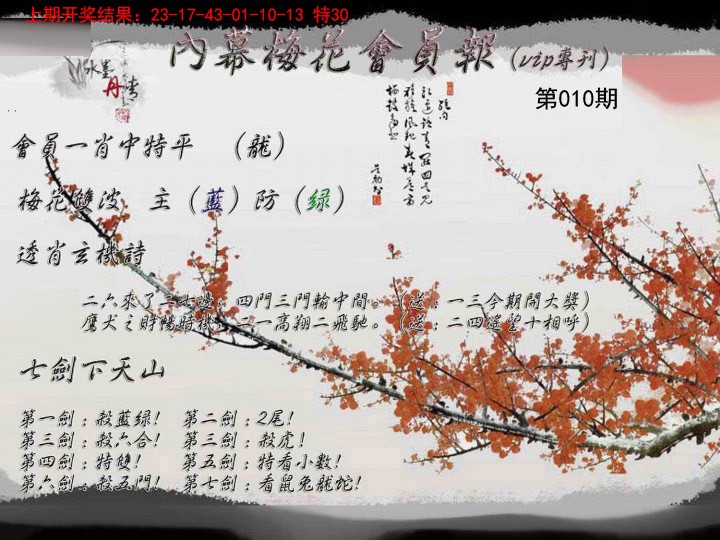 上期开奖结果：23-17-43-01-10-13 特30
內幕梅花會員報（vip專刊）
水墨
丹情
第010期
會員一肖中特平 （龍）
梅花雙波 主（藍）防（綠）
透肖玄機詩
二六來了三七邊，四門三門輸中間。（送：一三今期開大獎）
鷹犬之時暢時機，二一高翔二飛馳。（送：二四遙望十相呼）
七劍下天山
第一劍：殺藍綠！ 第二劍：2尾！
第三劍：殺六合！ 第三劍：殺虎！
第四劍：特雙！ 第五劍：特看小數！
第六劍：殺五門！ 第七劍：看鼠兔龍蛇！